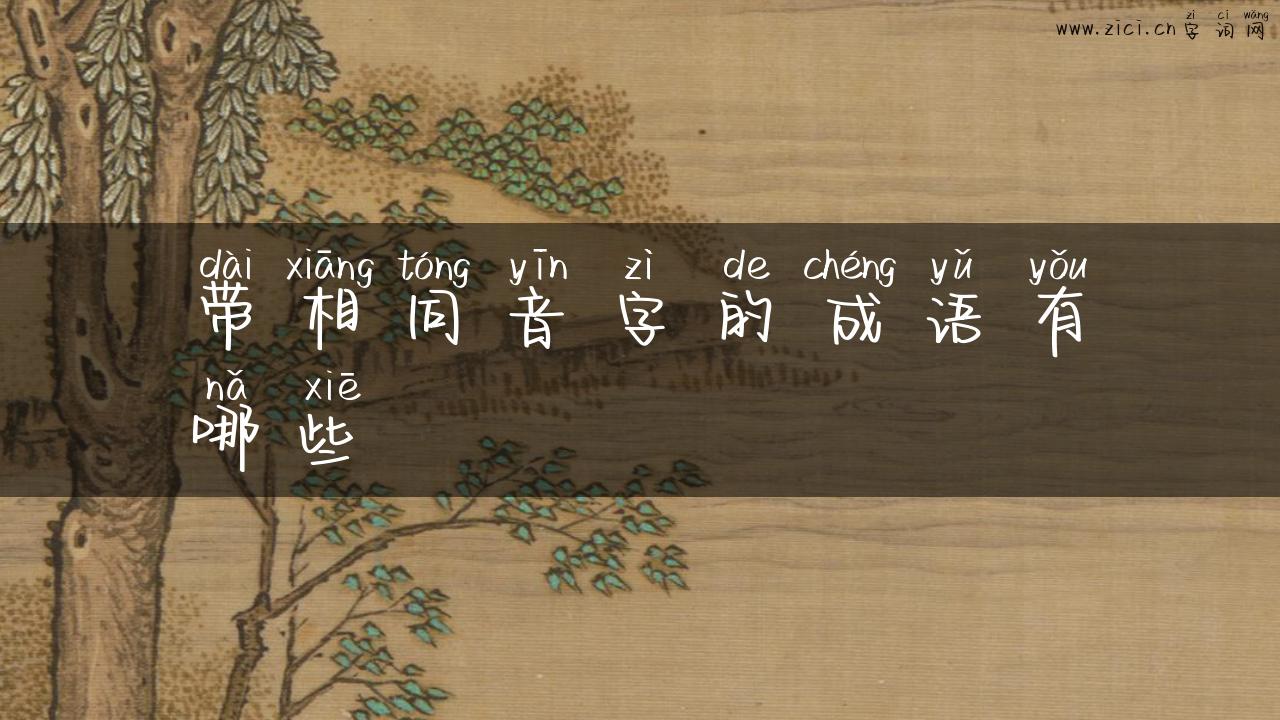 zì cí wǎng
www.zici.cn 字词网
dài xiāng tóng yīn zì de chéng yǔ yǒu
带相同音字的成语有
nǎ xiē
哪些